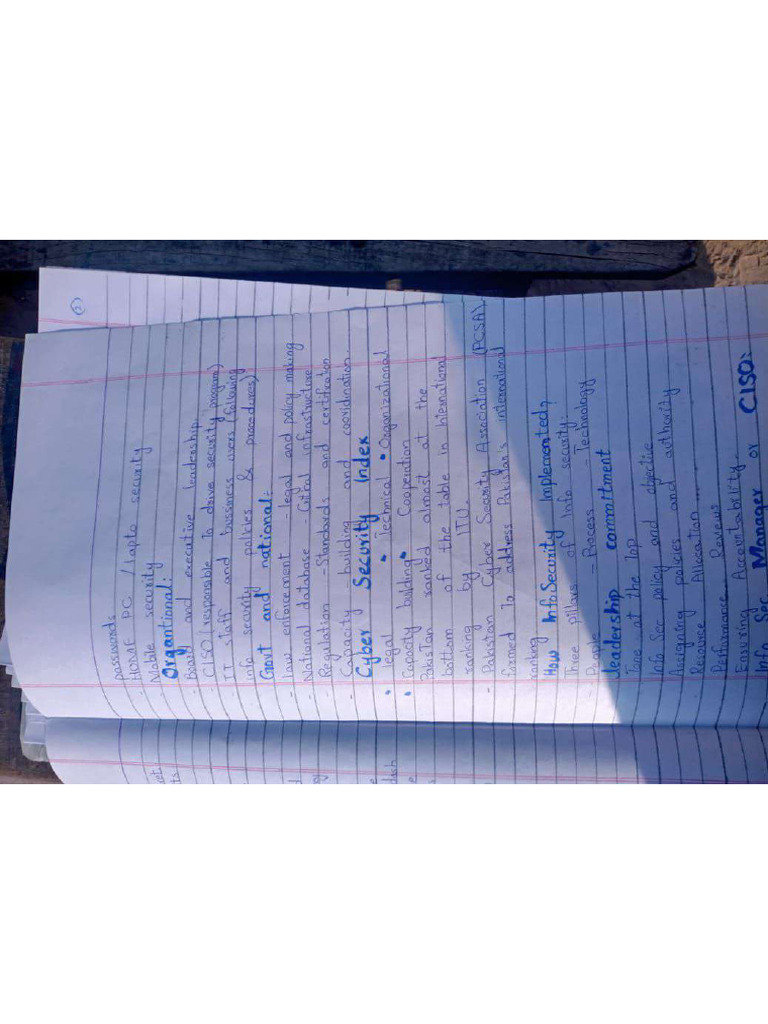 2
passwords
HOME PC / lapto security
Mobile security
Organtional:
Board and executive leadership.
- CISO (responsible to drive security program)
- IT staff and bussiness users (following
info security policies & procedures)
Govt and national:
- Law enforcement - legal and policy making
- National database - Critical infrastructure
- Regulation - Standards and certification
- Capacity building and cooridination.
Cyber Security Index
• legal • Technical • Organizational
• Capacity building • Cooperation
Pakistan ranked almost at the
bottom of the table in international
ranking by ITU.
- Pakistan Cyber Security Association (PCSA)
formed to address Pakistan's international
ranking
How InfoSecurity Implemented?
Three pillars of Info security:
- People - Process - Technology
leadership commitment
Tone at the Top
Info Sec policy and objective
Assigning policies and authority
Resource Allocation
Performance Reviews
Ensuring Accormtability.
Info Sec Manager or CISO: